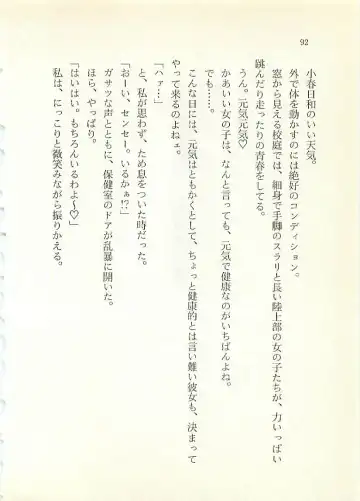 92
小春日和のいい天気。
外で体を動かすのには絶好のコンディション。
窓から見える校庭では、細身で手脚のスラリと長い陸上部の女の子たちが、力いっぱい
跳んだり走ったりの青春をしてる。
うん。元気元気♡
かあいい女の子は、なんと言っても、元気で健康なのがいちばんよね。
でも……。
こんな日には、元気はともかくとして、ちょっと健康的とは言い難い彼女も、決まって
やって来るのよねェ。
「ハァ…」
と、私が思わず、ため息をついた時だった。
「おーい、センセー。いるかぁ!?」
ガサツな声とともに、保健室のドアが乱暴に開いた。
ほら、やっぱり。
「はいはい。もちろんいるわよ〜♡」
私は、にっこりと微笑みながら振りかえる。